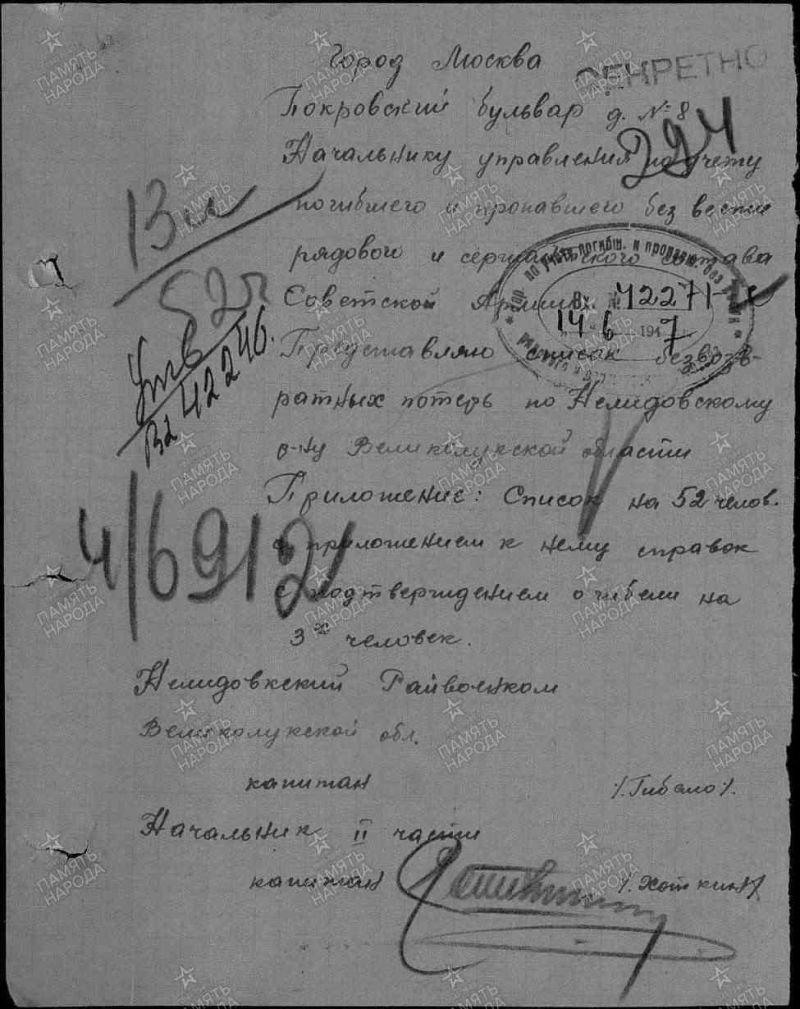 Город Москва
СЕКРЕТНО
Покровский бульвар д. № 8
294
Начальнику управления по учету
погибшего и пропавшего без вести
13 л
рядового и сержантского состава
52 ч
Советской Армии
по учету погибш. и пропавш. без
Вх. № 42271
14 6 1947
Утв
Вх 42246.
Представляю список безвозв-
ратных потерь по Нелидовскому
р-ну Великолукской области
Приложение: Список на 52 челов.
4/6912
с приложением к нему справок
с подтверждением о гибели на
3х человек.
Нелидовкский Райвоенком
Великолукской обл.
капитан /.Гибало/.
Начальник II части
капитан /.Хоткин/
ПАМЯТЬ НАРОДА